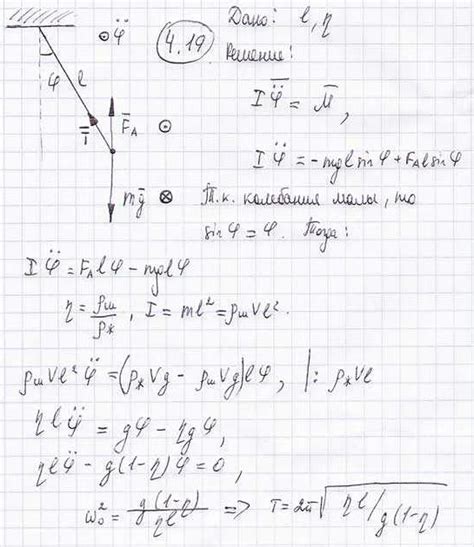 4.19
Дано: l, η
Решение:
φ̈
φ l
T̄
F̄_A
mḡ
I φ̈ = M̄,
I φ̈ = -mgl sin φ + F_A l sin φ
Т.к. колебания малы, то
sin φ = φ. Тогда:
I φ̈ = F_A l φ - mgl φ
η = ρ_ш/ρ_ж, I = ml² = ρ_ш V l².
ρ_ш V l² φ̈ = (ρ_ж V g - ρ_ш V g) l φ, |: ρ_ж V l
η l φ̈ = gφ - ηgφ,
η l φ̈ - g(1-η)φ = 0,
ω₀² = g(1-η)/ηl => T = 2π√(ηl/g(1-η))